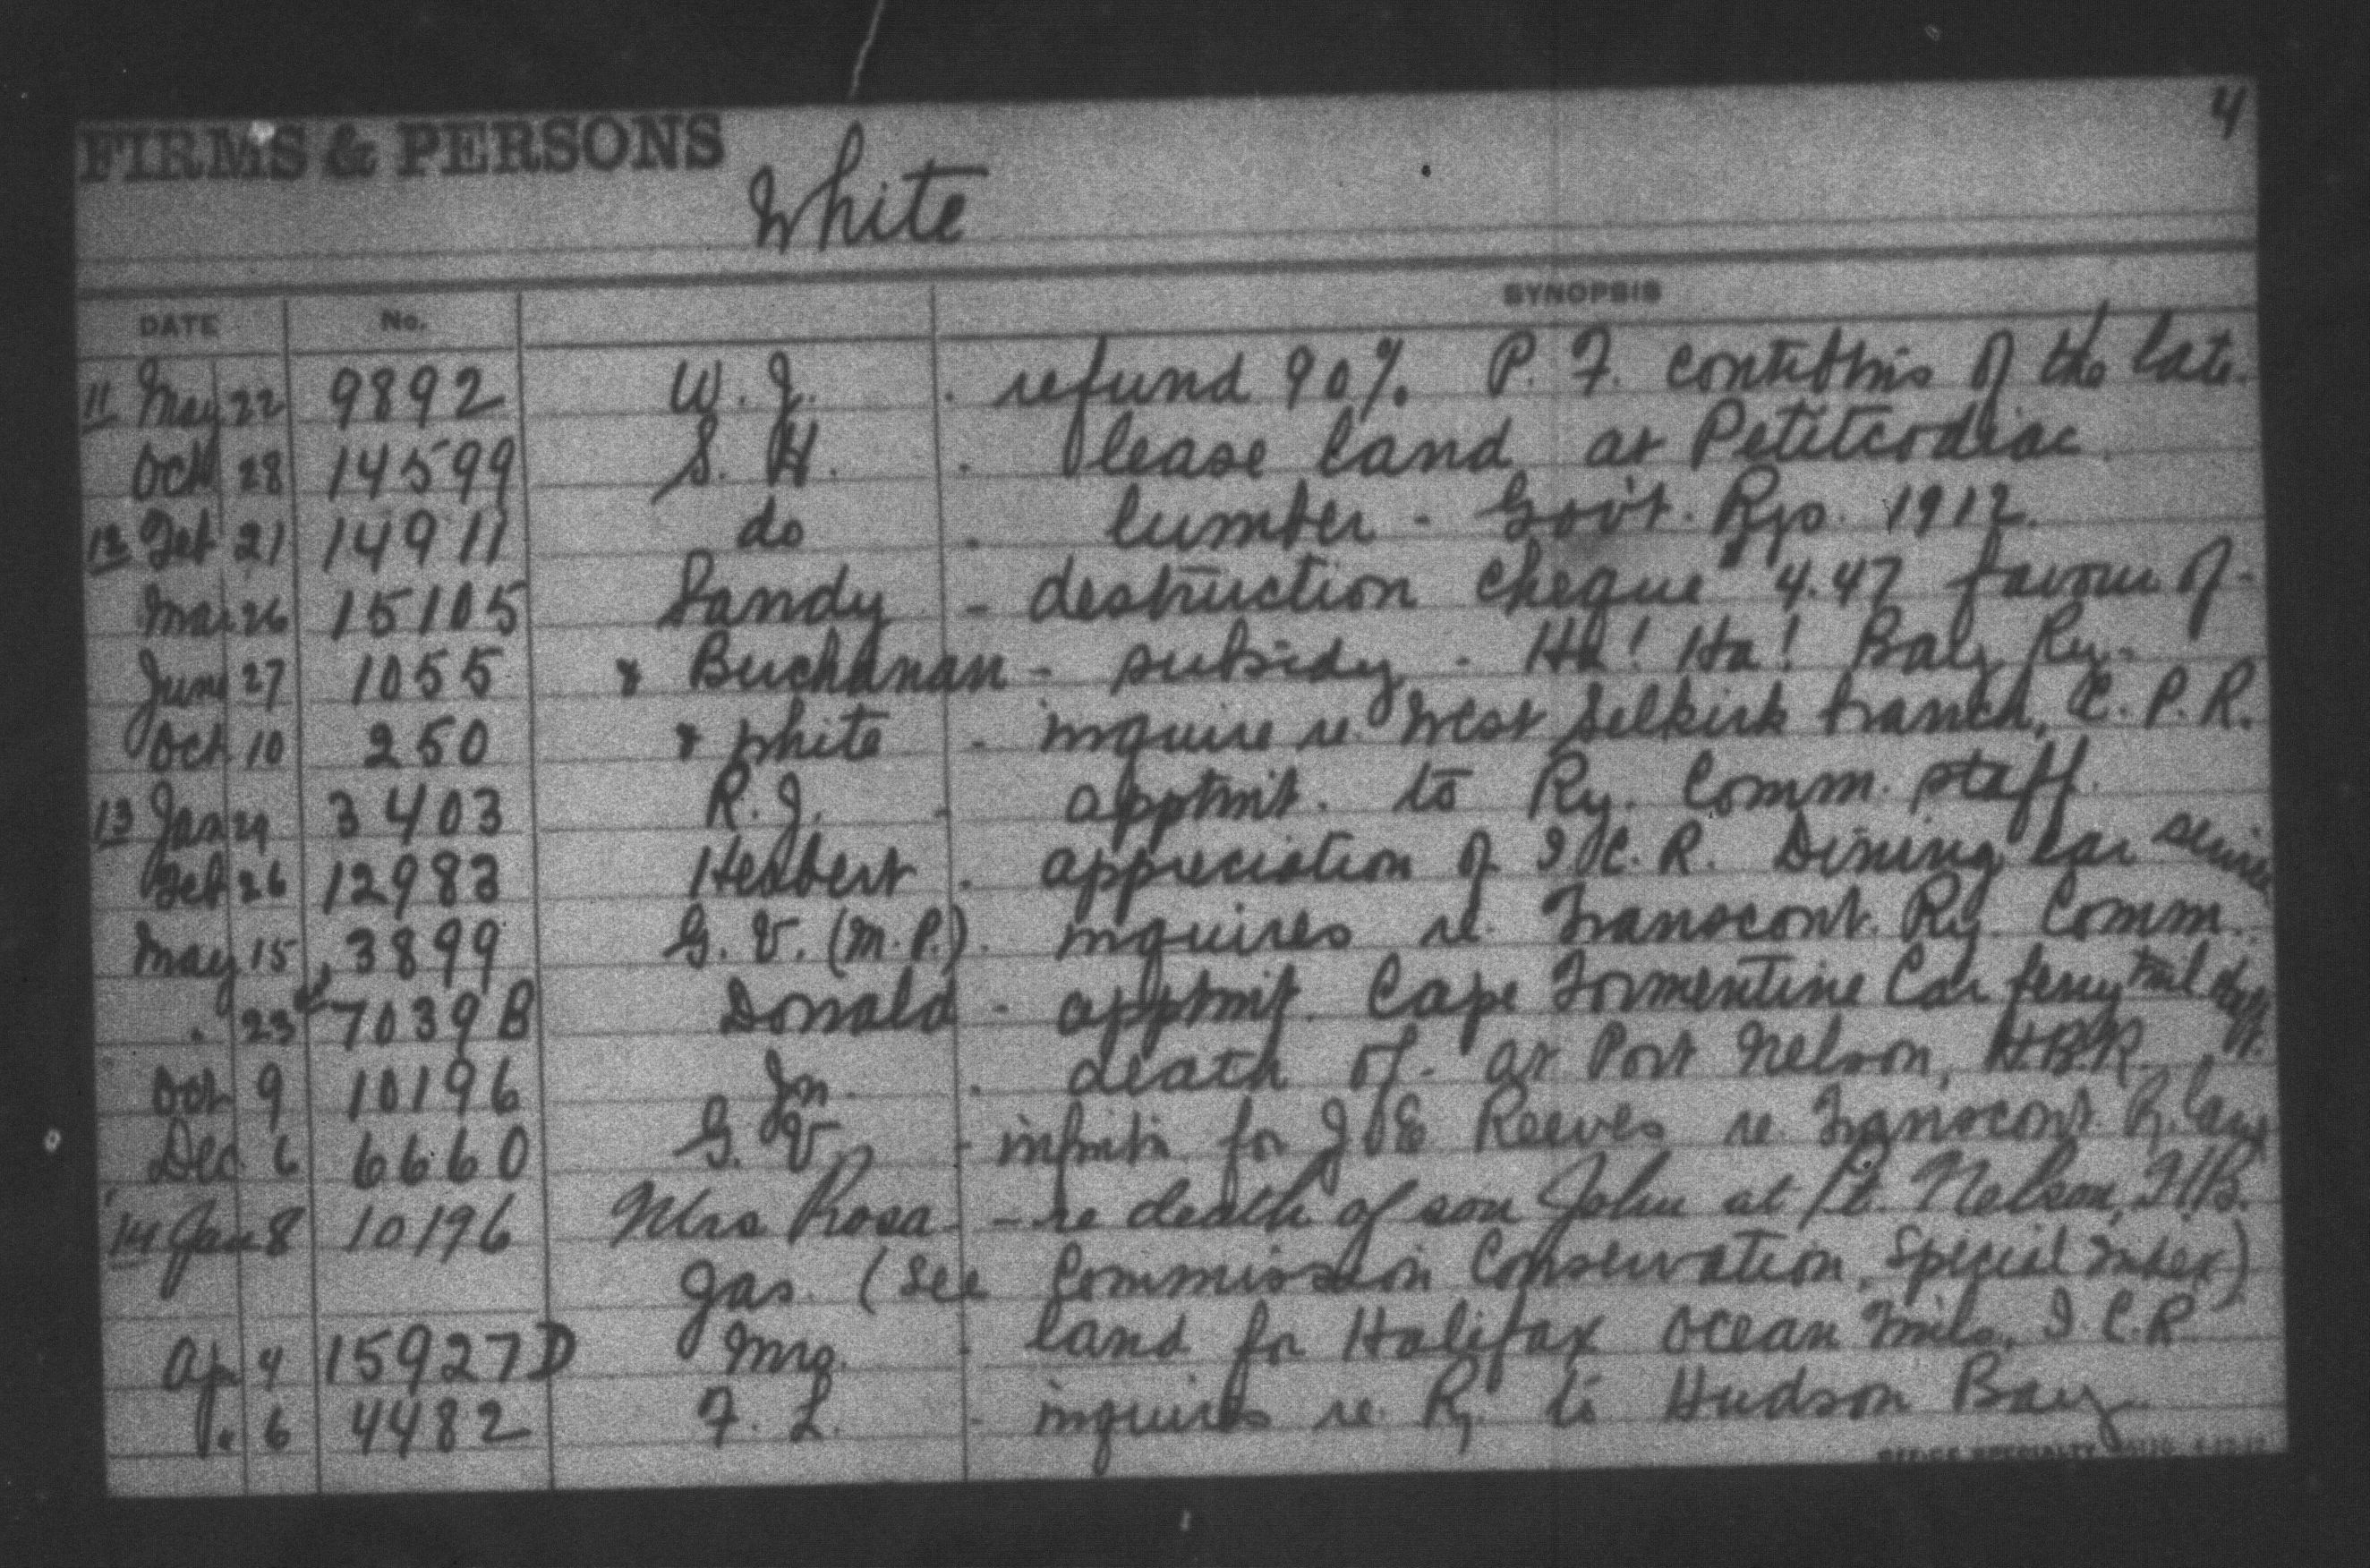 4
FIRMS & PERSONS
White
SYNOPSIS
DATE No.
11 May 22 9892 W. J. . refund 90% P. F. contibtns of the late.
Oct 28 14599 S. H. . lease land at Petitcodiac.
12 Feb 21 14911 do . lumber - Gov't. Rys. 1912.
Mar 26 15105 Sandy - destruction cheque " 4.47 favour of -
June 27 1055 & Buchanan - subsidy - Ha! Ha! Bay Ry.
Oct 10 250 & White . inquire re. West Selkirk branch, C. P. R.
13 Jan 29 3403 R. J. . apptmt. to Ry. Comm. staff.
Feb 26 12983 Herbert . appreciation of I. C. R. Dining Car service
May 15 3899 G. V. (M. P.) . inquires re. Transcont. Ry. Comm.
. 23 7039B Donald - apptmt. Cape Tormentine Car ferry
Oct 9 10196 Jn. . death of - at Port Nelson, H.B.R.
Dec. 6 6660 G. V. - infmtn for J. E. Reeves re. Transcont. Ry.
14 Jan 8 10196 Mrs Rosa - re death of son John at Pt. Nelson, H.B.
Jas. (see Commission Conservation, Special Index)
Ap. 4 15927D Mrs. . land for Halifax Ocean Tmls. I. C. R
" 6 4482 F. L. . inquires re. Ry. to Hudson Bay
OFFICE SPECIALTY